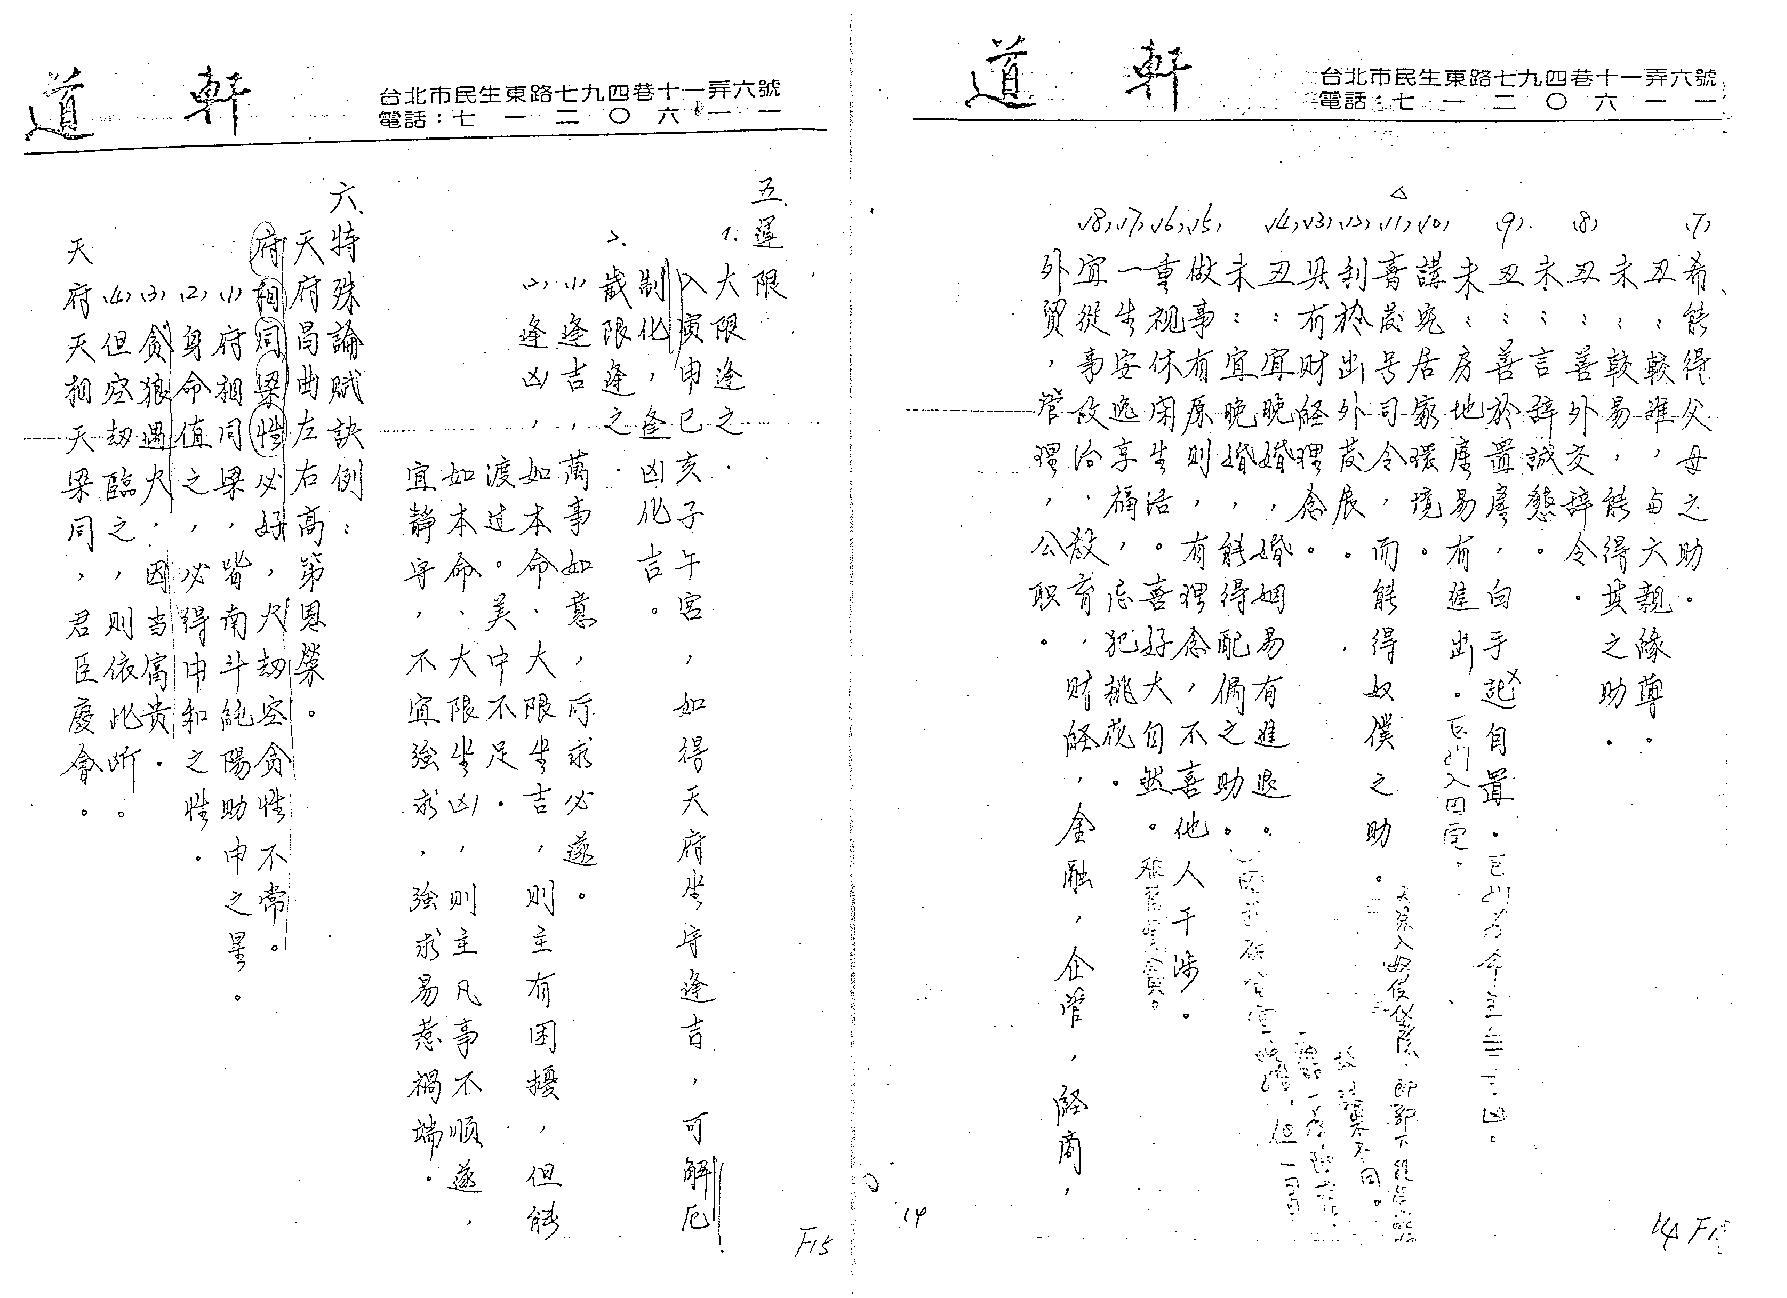 道軒
台北市民生東路七九四巷十一弄六號
電話：七一二〇六一一
(7) 希能得父母之助。
丑：較難，与六親緣薄。
未：較易，能得其之助。
(8) 丑：善外交辭令。
未：言辭誠態。
(9) 丑：善於置產，白手起自置。
未：房地產易有進出。巨門入田宅。
(10) 講究居家環境。
(11) 喜發号司令，而能得奴僕之助。
(12) 利於出外發展。
(13) 具有财経理念。
(14) 丑：宜晚婚，婚姻易有進退。
未：宜晚婚，能得配偶之助。
(15) 做事有原則，有理念，不喜他人干涉。
(16) 重視休闲生活。喜好大自然。
(17) 一生安逸享福，忌犯桃花。
(18) 宜從事政治，教育，财経，金融，企管，経商，
外貿，管理，公职。
14
14 F1
道軒
台北市民生東路七九四巷十一弄六號
電話：七一二〇六一一
五、運限
1. 大限逢之.
入寅申巳亥子午宮，如得天府坐守逢吉，可解厄
制化，逢凶化吉。
2. 歲限逢之.
(1) 逢吉，萬事如意，所求必遂。
(2) 逢凶，如本命、大限坐吉，則主有困擾，但能
渡过。美中不足.
如本命、大限坐凶，則主凡事不順遂，
宜靜守，不宜強求，強求易惹禍端。
六、特殊論賦訣例：
天府昌曲左右高第恩榮。
府相同梁性必好，火劫空贪性不常。
(1) 府相同梁，皆南斗純陽助中之星。
(2) 身命值之，必得中和之性。
(3) 贪狼遇火，因当富贵.
(4) 但空劫臨之，則依此断。
天府天相天梁同，君臣慶會。
F15